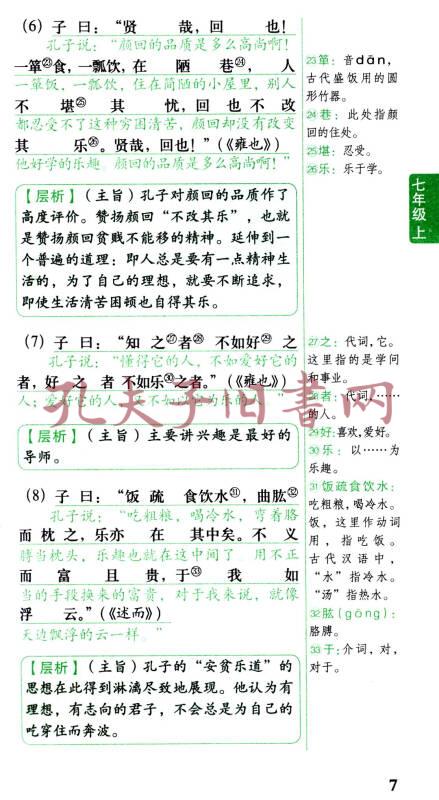 (6) 子曰：“贤哉，回也！
孔子说：“颜回的品质是多么高尚啊！
一箪㉓食，一瓢饮，在陋巷㉔，人
一箪饭，一瓢饮，住在简陋的小屋里，别人
不堪㉕其忧，回也不改
都忍受不了这种穷困清苦，颜回却没有改变
其乐㉖。贤哉，回也！”（《雍也》）
他好学的乐趣。颜回的品质是多么高尚啊！”
【层析】（主旨）孔子对颜回的品质作了
高度评价。赞扬颜回“不改其乐”，也就
是赞扬颜回贫贱不能移的精神。延伸到一
个普遍的道理：即人总是要有一点精神生
活的，为了自己的理想，就要不断追求，
即使生活清苦困顿也自得其乐。
(7) 子曰：“知之㉗者㉘不如好㉙之
孔子说：“懂得它的人，不如爱好它的
者，好之者不如乐㉚之者。”（《雍也》）
人；爱好它的人，又不如以它为乐的人。”
【层析】（主旨）主要讲兴趣是最好的
导师。
(8) 子曰：“饭疏食饮水㉛，曲肱㉜
孔子说：“吃粗粮，喝冷水，弯着胳
而枕之，乐亦在其中矣。不义
膊当枕头，乐趣也就在这中间了 用不正
而富且贵，于㉝我如
当的手段换来的富贵，对于我来说，就像
浮云。”（《述而》）
天边飘浮的云一样。”
【层析】（主旨）孔子的“安贫乐道”的
思想在此得到淋漓尽致地展现。他认为有
理想，有志向的君子，不会总是为自己的
吃穿住而奔波。
23箪：音dān，
古代盛饭用的圆
形竹器。
24巷：此处指颜
回的住处。
25堪：忍受。
26乐：乐于学。
27之：代词，它。
这里指的是学问
和事业。
28者：代词，……
的人。
29好：喜欢，爱好。
30乐：以……为
乐趣。
31饭疏食饮水：
吃粗粮，喝冷水。
饭，这里作动词
用，指吃饭。
古代汉语中，
“水”指冷水。
“汤”指热水。
32肱（gōng）：
胳膊。
33于：介词，对，
对于。
七年级上
孔夫子旧书网
7